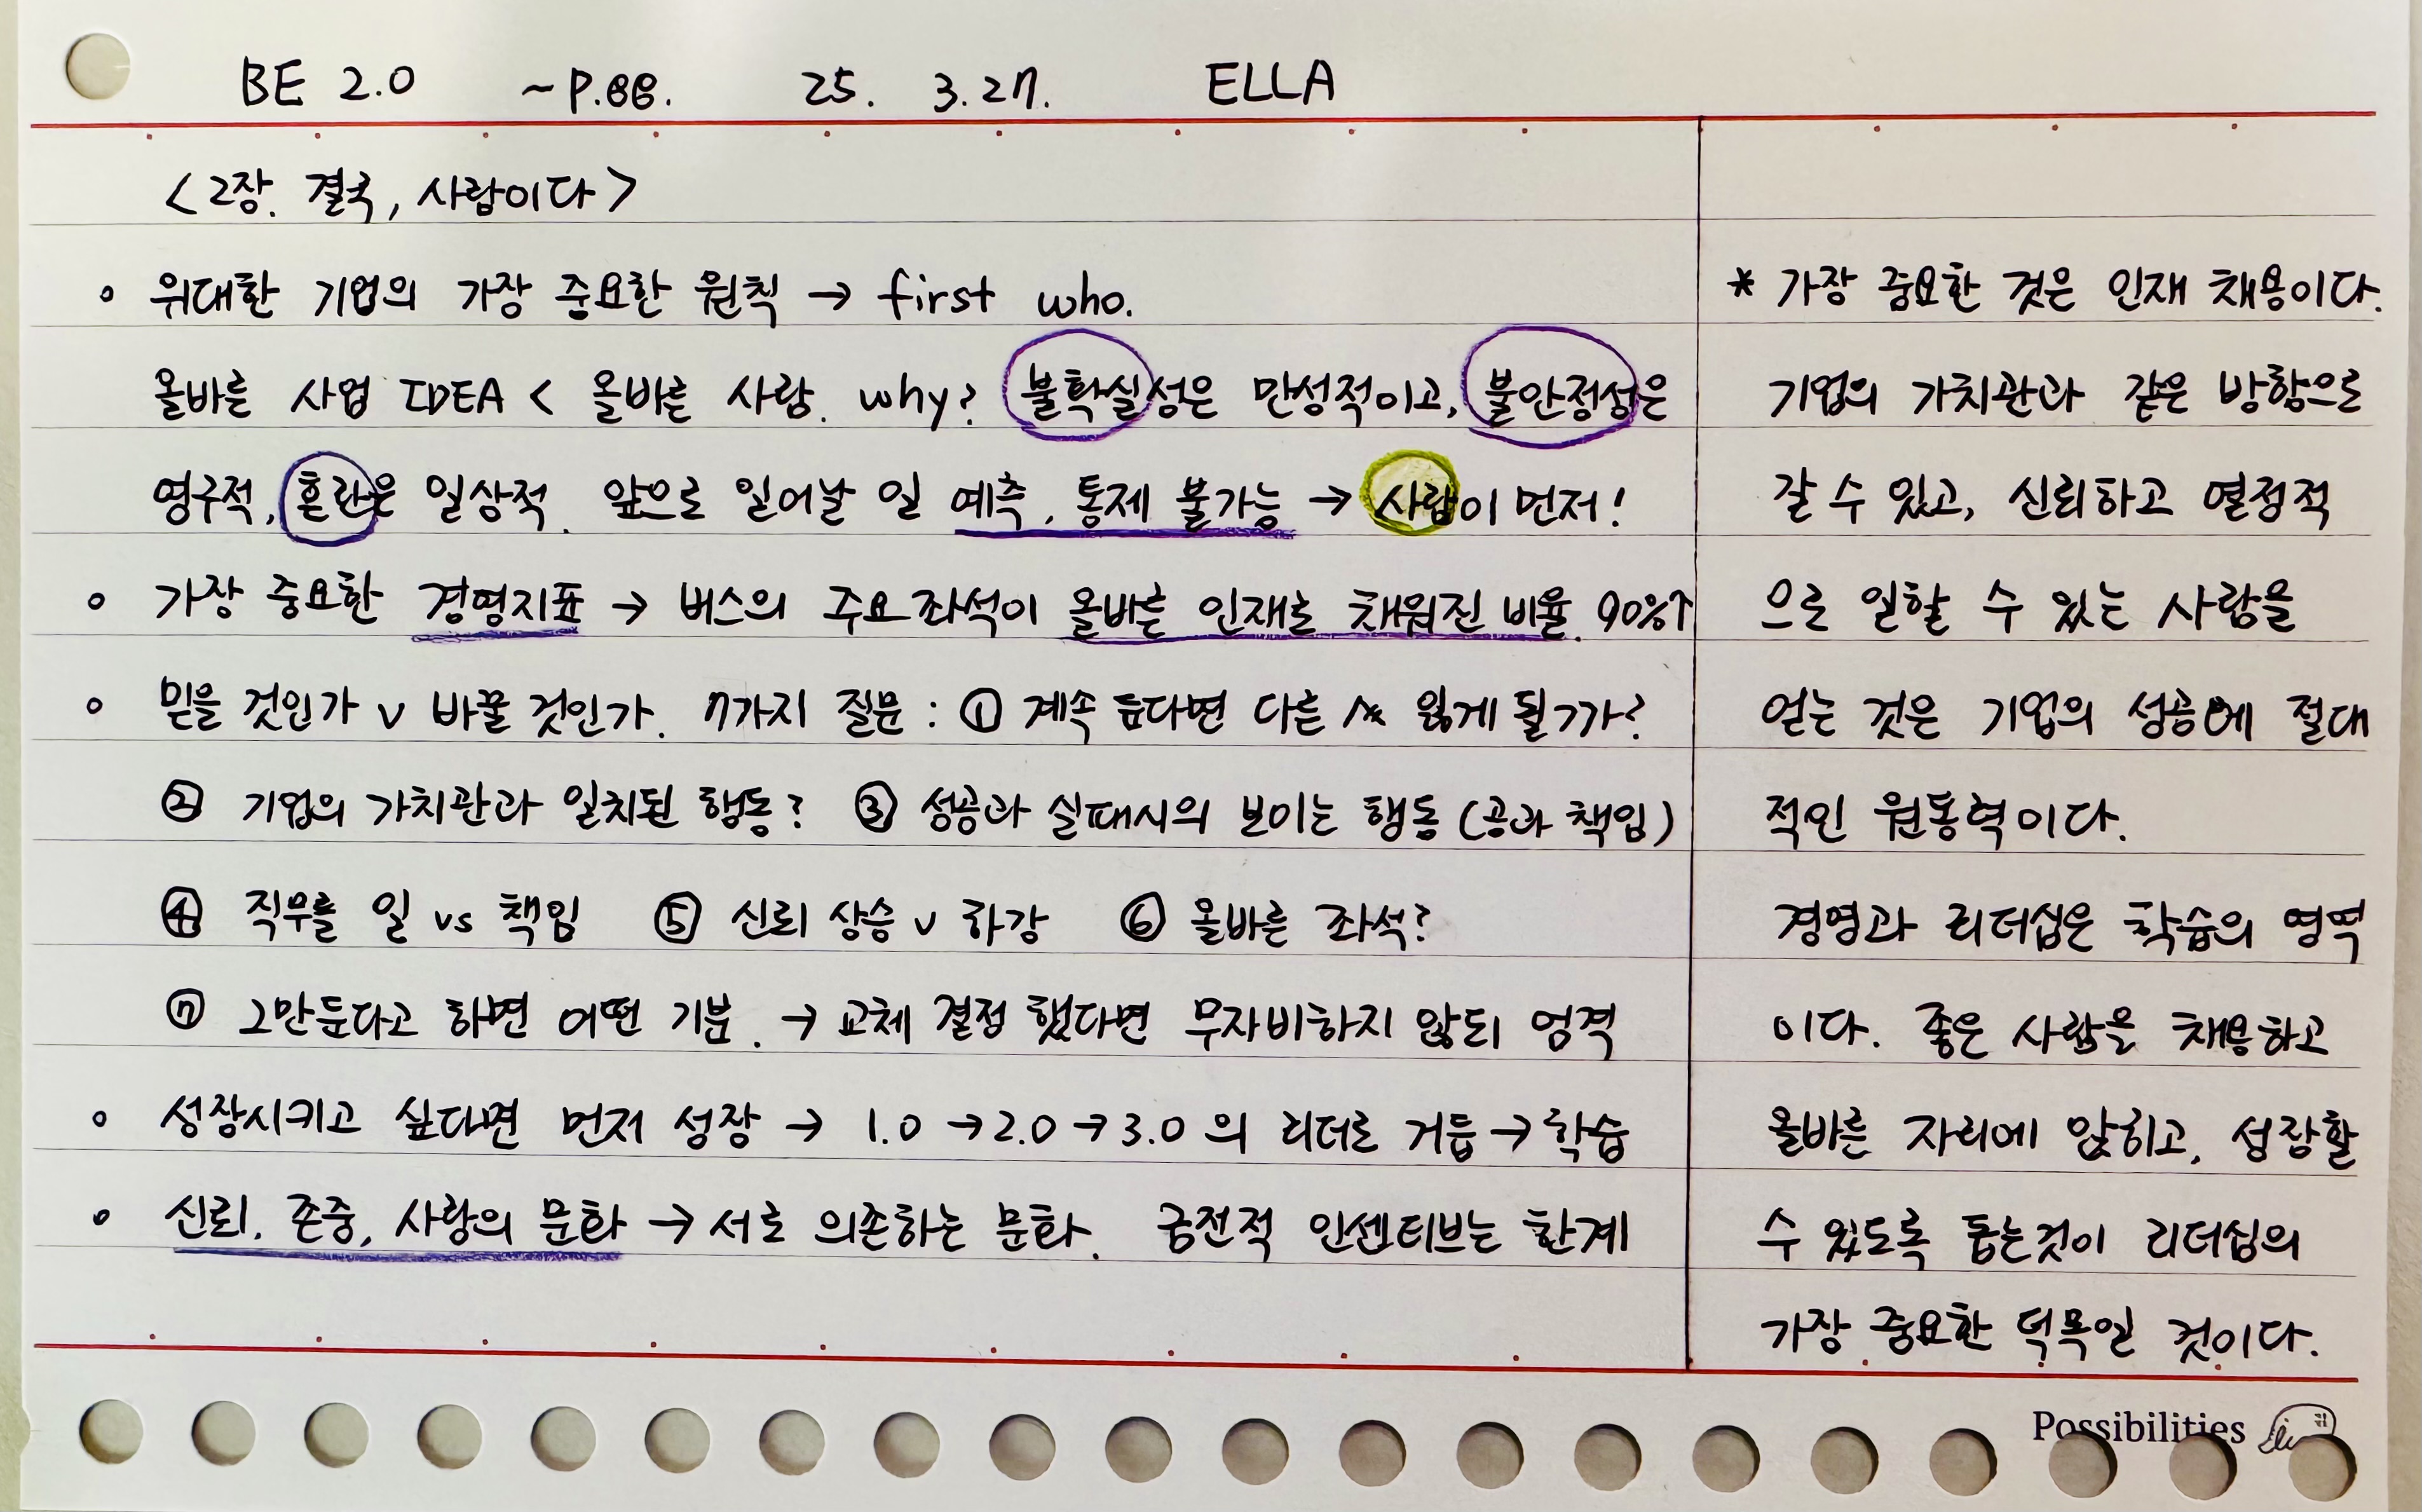 BE 2.0 ~P.88. 25. 3.27. ELLA
<2장. 결국, 사람이다>
◦ 위대한 기업의 가장 중요한 원칙 → first who.
올바른 사업 IDEA < 올바른 사람. why? 불확실성은 만성적이고, 불안정성은
영구적, 혼란은 일상적. 앞으로 일어날 일 예측, 통제 불가능 → 사람이 먼저!
◦ 가장 중요한 경영지표 → 버스의 주요좌석이 올바른 인재로 채워진 비율. 90%↑
◦ 믿을 것인가 v 바꿀 것인가. 7가지 질문 : ① 계속 둔다면 다른 잃게 될까?
② 기업의 가치관과 일치된 행동? ③ 성공과 실패시의 보이는 행동 (공과 책임)
④ 직무를 일 vs 책임 ⑤ 신뢰 상승 v 하강 ⑥ 올바른 좌석?
⑦ 그만둔다고 하면 어떤 기분. → 교체 결정 했다면 무자비하지 않되 엄격
◦ 성장시키고 싶다면 먼저 성장 → 1.0 → 2.0 → 3.0 의 리더로 거듭 → 학습
◦ 신뢰. 존중, 사랑의 문화 → 서로 의존하는 문화. 금전적 인센티브는 한계
* 가장 중요한 것은 인재 채용이다.
기업의 가치관과 같은 방향으로
갈 수 있고, 신뢰하고 열정적
으로 일할 수 있는 사람을
얻는 것은 기업의 성공에 절대
적인 원동력이다.
경영과 리더십은 학습의 영역
이다. 좋은 사람을 채용하고
올바른 자리에 앉히고, 성장할
수 있도록 돕는것이 리더십의
가장 중요한 덕목일 것이다.
Possibilities